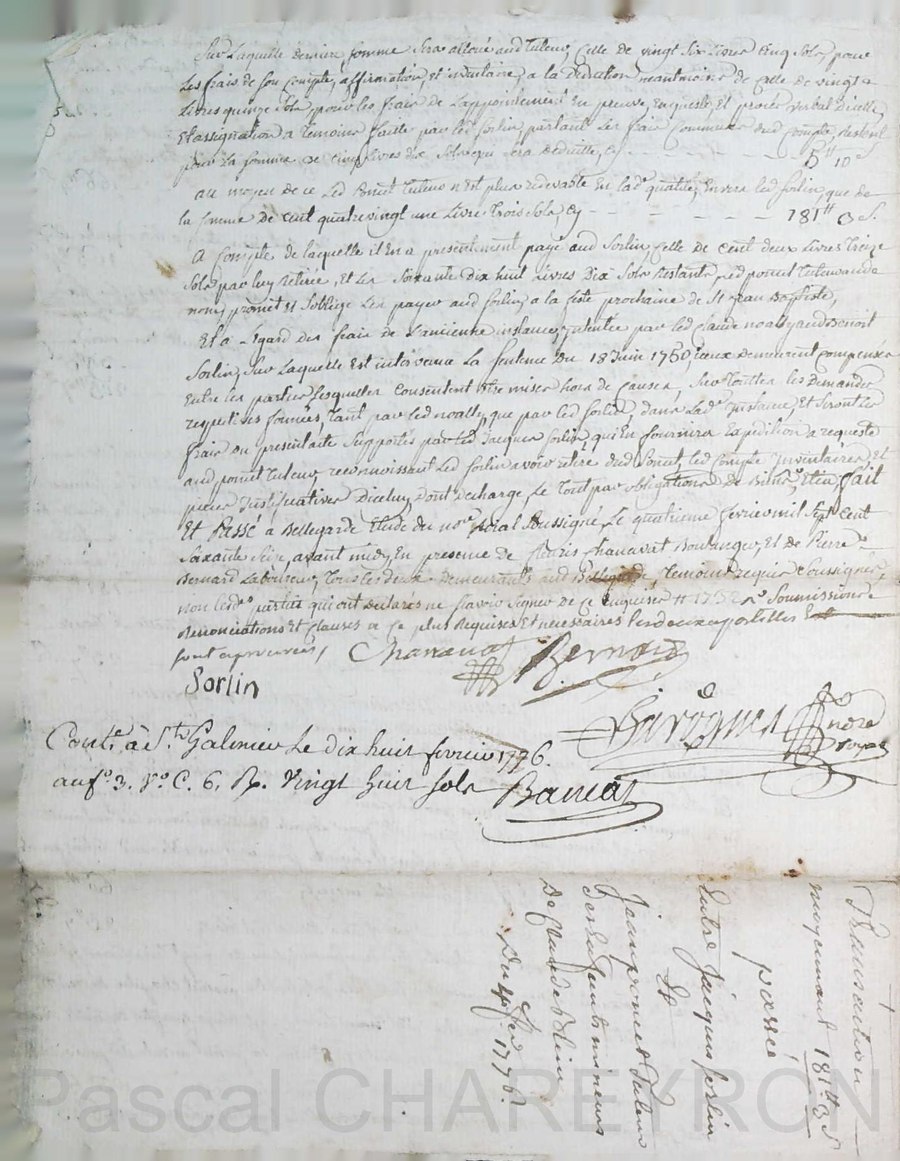 Sur Laquelle derniere somme sera alloué aud tuteur, Celle de vingt six Livres cinq Sols, pour
Les frais de son Compte, affirmation, et inventaire, a la Deduction neantmoins de Celle de vingt
Livres quinze Sols, pour les frais de L'appointement En preuve, Enqueste et procès verbal d'icelle
Et assignation a temoins faitte par led Sorlin, partant les frais Commun dud Compte, restent
pour la somme de cinq Livres dix Sols qui sera deduitte, cy - - - 5tt 10s
au moyen de ce Led Poncet tuteur n'est plus redevable En lade qualité, Envers led Sorlin, que de
la somme de Cent quatrevingt une Livre trois Sols cy - - - 181tt 3s.
A Compte de laquelle il en a presentement payé aud Sorlin, Celle de Cent deux Livres treize
Sols par luy retirée, Et les Soixante dix huit Livres dix Sols restants, led poncet tuteur
nom, promet et S'oblige Les payer aud Sorlin, a la feste prochaine de St Jean Baptiste,
Et a L'egard des frais de L'ancienne instance, intentée par led Claude noally aud Benoit
Sorlin, Sur Laquelle est intervenue La Sentence du 18 Juin 1750, iceux demeurent Compensés
Entre les parties, lesquelles Consentent être mises hors de Cause, Sur touttes les demandes
respectives formées, tant par led noally, que par led Sorlin, dans Lade Instance, Et Seront les
frais du present acte Supportés par led Jacques Sorlin, qui En fournira Expedition a requeste
aud poncet tuteur, reconnoissant Led Sorlin avoir retiré dud Poncet, led Compte Inventaires, Et
pieces Justificatives Diceluy, dont decharge, Le tout par obligations de Biens, Etca, fait
Et Passé a Bellegarde Etude du nore Royal Soussigné, Le quatrieme fevrier mil Sept Cent
Soixante Seize, avant midy, En presence de fleuris Chanavat Boulanger, Et de Pierre
Bernard Laboureur, tous les deux Demeurants aud Bellegarde, temoins requis Soussignés,
non lesde parties qui ont declarés ne Sçavoir Signer de ce Enquises # 1752 Soumissions
Renonciations Et Clauses a ce plus Requises Et necessaires les deux apostilles
sont aprouvées,
Chanavat
Bernard
Sorlin
Controllé à St Galmier Le dix huit fevrier 1776.
au fo 3. Vo C. 6. R. Vingt huit Sols
Transaction
moyennant 181tt 3s
passée
Entre Jacques Sorlin
Et
Jean poncet Tuteur
des Enfants mineurs
De Claude
Du 4e fev 1776.
Pascal CHAREYRON